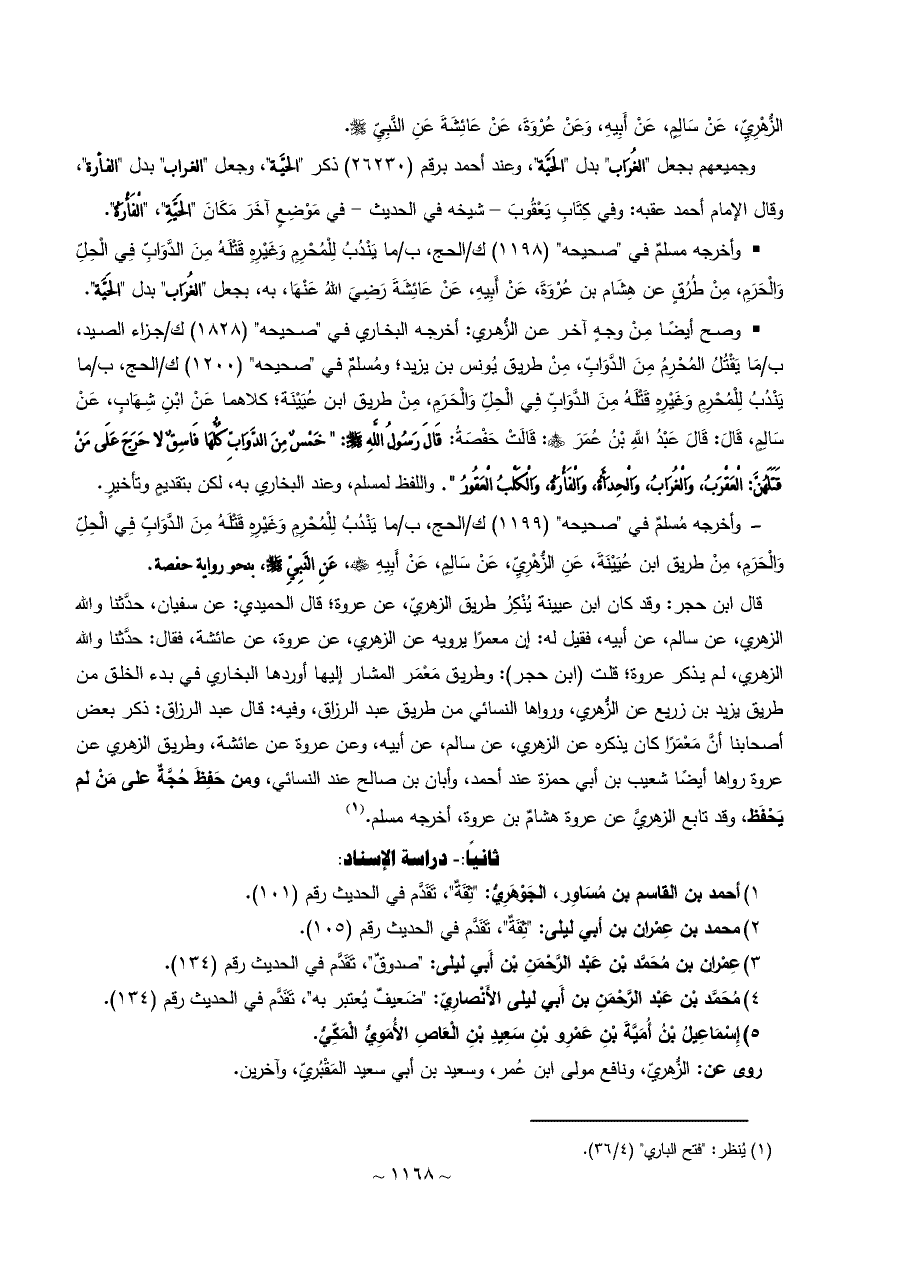 الزُّهْرِيِّ، عَنْ سَالِمٍ، عَنْ أَبِيهِ، وَعَنْ عُرْوَةَ، عَنْ عَائِشَةَ عَنِ النَّبِيِّ ﷺ.
وجميعهم بجعل "الغُرَاب" بدل "الحَيَّة"، وعند أحمد برقم (٢٦٢٣٠) ذكر "الحَيَّة"، وجعل "الغراب" بدل "الفأرة"،
وقال الإمام أحمد عقبه: وفي كِتَابِ يَعْقُوبَ – شيخه في الحديث – في مَوْضِعٍ آخَرَ مَكَانَ "الحَيَّةِ"، "الْفَأْرَةُ".
▪ وأخرجه مسلمٌ في "صحيحه" (١١٩٨) ك/الحج، ب/ما يَنْدُبُ لِلْمُحْرِمِ وَغَيْرِهِ قَتْلَهُ مِنَ الدَّوَابِّ فِي الْحِلِّ
وَالْحَرَمِ، مِنْ طُرُقٍ عن هِشَام بن عُرْوَةَ، عَنْ أَبِيهِ، عَنْ عَائِشَةَ رَضِيَ اللهُ عَنْهَا، به، بجعل "الغُرَاب" بدل "الحَيَّة".
▪ وصح أيضًا مِنْ وجهٍ آخر عن الزُّهري: أخرجه البخاري في "صحيحه" (١٨٢٨) ك/جزاء الصيد،
ب/مَا يَقْتُلُ المُحْرِمُ مِنَ الدَّوَابِّ، مِنْ طريق يُونس بن يزيد؛ ومُسلمٌ في "صحيحه" (١٢٠٠) ك/الحج، ب/ما
يَنْدُبُ لِلْمُحْرِمِ وَغَيْرِهِ قَتْلَهُ مِنَ الدَّوَابِّ فِي الْحِلِّ وَالْحَرَمِ، مِنْ طريق ابن عُيَيْنَة؛ كلاهما عَنْ ابْنِ شِهَابٍ، عَنْ
سَالِمٍ، قَالَ: قَالَ عَبْدُ اللهِ بْنُ عُمَرَ ﷺ: قَالَتْ حَفْصَةُ: قَالَ رَسُولُ اللَّهِ ﷺ: " خَمْسٌ مِنَ الدَّوَابِّ كُلُّهَا فَاسِقٌ لا حَرَجَ عَلَى مَنْ
قَتَلَهُنَّ: الْعَقْرَبُ، وَالْغُرَابُ، وَالْحِدَأَةُ، وَالْفَأْرَةُ، وَالْكَلْبُ الْعَقُورُ ". واللفظ لمسلم، وعند البخاري به، لكن بتقديمٍ وتأخيرٍ.
– وأخرجه مُسلمٌ في "صحيحه" (١١٩٩) ك/الحج، ب/ما يَنْدُبُ لِلْمُحْرِمِ وَغَيْرِهِ قَتْلَهُ مِنَ الدَّوَابِّ فِي الْحِلِّ
وَالْحَرَمِ، مِنْ طريق ابن عُيَيْنَةَ، عَنِ الزُّهْرِيِّ، عَنْ سَالِمٍ، عَنْ أَبِيهِ ﷺ، عَنِ النَّبِيِّ ﷺ، بنحو رواية حفصة.
قال ابن حجر: وقد كان ابن عيينة يُنْكِرُ طريق الزهريّ، عن عروة؛ قال الحميدي: عن سفيان، حدَّثنا والله
الزهري، عن سالم، عن أبيه، فقيل له: إن معمرًا يرويه عن الزهري، عن عروة، عن عائشة، فقال: حدَّثنا والله
الزهري، لم يذكر عروة؛ قلت (ابن حجر): وطريق مَعْمَر المشار إليها أوردها البخاري في بدء الخلق من
طريق يزيد بن زريع عن الزُّهري، ورواها النسائي من طريق عبد الرزاق، وفيه: قال عبد الرزاق: ذكر بعض
أصحابنا أنَّ مَعْمَرًا كان يذكره عن الزهري، عن سالم، عن أبيه، وعن عروة عن عائشة، وطريق الزهري عن
عروة رواها أيضًا شعيب بن أبي حمزة عند أحمد، وأبان بن صالح عند النسائي، ومن حَفِظَ حُجَّةٌ على مَنْ لم
يَحْفَظ، وقد تابع الزهريَّ عن عروة هشامُ بن عروة، أخرجه مسلم.(١)
ثانياً:- دراسة الإسناد:
١) أحمد بن القاسم بن مُسَاوِر، الجَوْهَرِيُّ: "ثِقَةٌ"، تَقَدَّم في الحديث رقم (١٠١).
٢) محمد بن عِمْران بن أبي ليلى: "ثِقَةٌ"، تَقَدَّم في الحديث رقم (١٠٥).
٣) عِمْران بن مُحَمَّد بْن عَبْد الرَّحْمَنِ بْن أَبي ليلى: "صدوقٌ"، تَقَدَّم في الحديث رقم (١٣٤).
٤) مُحَمَّد بْن عَبْد الرَّحْمَنِ بن أَبي ليلى الأَنْصارِيّ: "ضَعيفٌ يُعتبر به"، تَقَدَّم في الحديث رقم (١٣٤).
٥) إِسْمَاعِيلُ بْنُ أُمَيَّةَ بْنِ عَمْرِو بْنِ سَعِيدِ بْنِ الْعَاصِ الأُمَوِيُّ الْمَكِّيُّ.
روى عن: الزُّهريّ، ونافع مولى ابن عُمر، وسعيد بن أبي سعيد المَقْبُرِيّ، وآخرين.
(١) يُنظر: "فتح الباري" (٣٦/٤).
~ ١١٦٨ ~